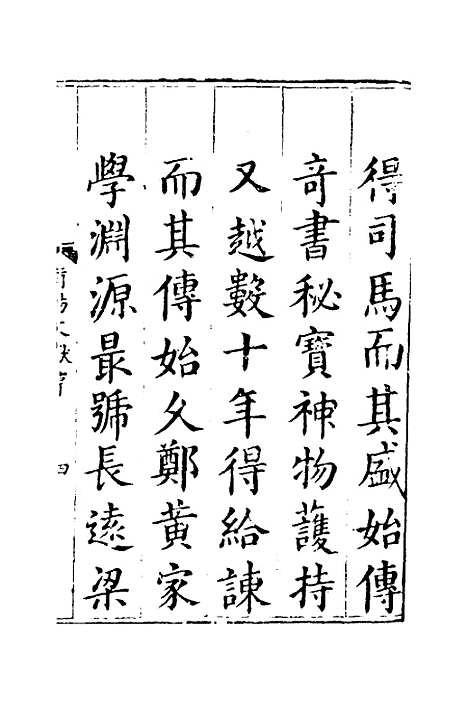 得司馬而其盛始傳
竒書秘寶神物䕶持
又越數十年得給諫
而其傳始乆鄭黄家
學淵源最號長逺梁
四